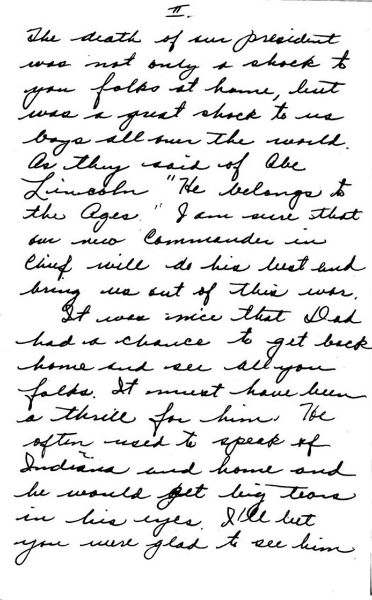 II.
The death of our president
was not only a shock to
you folks at home, but
was a great shock to us
boys all over the world.
As they said of Abe
Lincoln "He belongs to
the Ages." I am sure that
our new Commander in
Chief will do his best and
bring us out of this war.
It was nice that Dad
had a chance to get back
home and see all you
folks. It must have been
a thrill for him. He
often used to speak of
Indiana and home and
he would get big tears
in his eyes. I'll bet
you were glad to see him